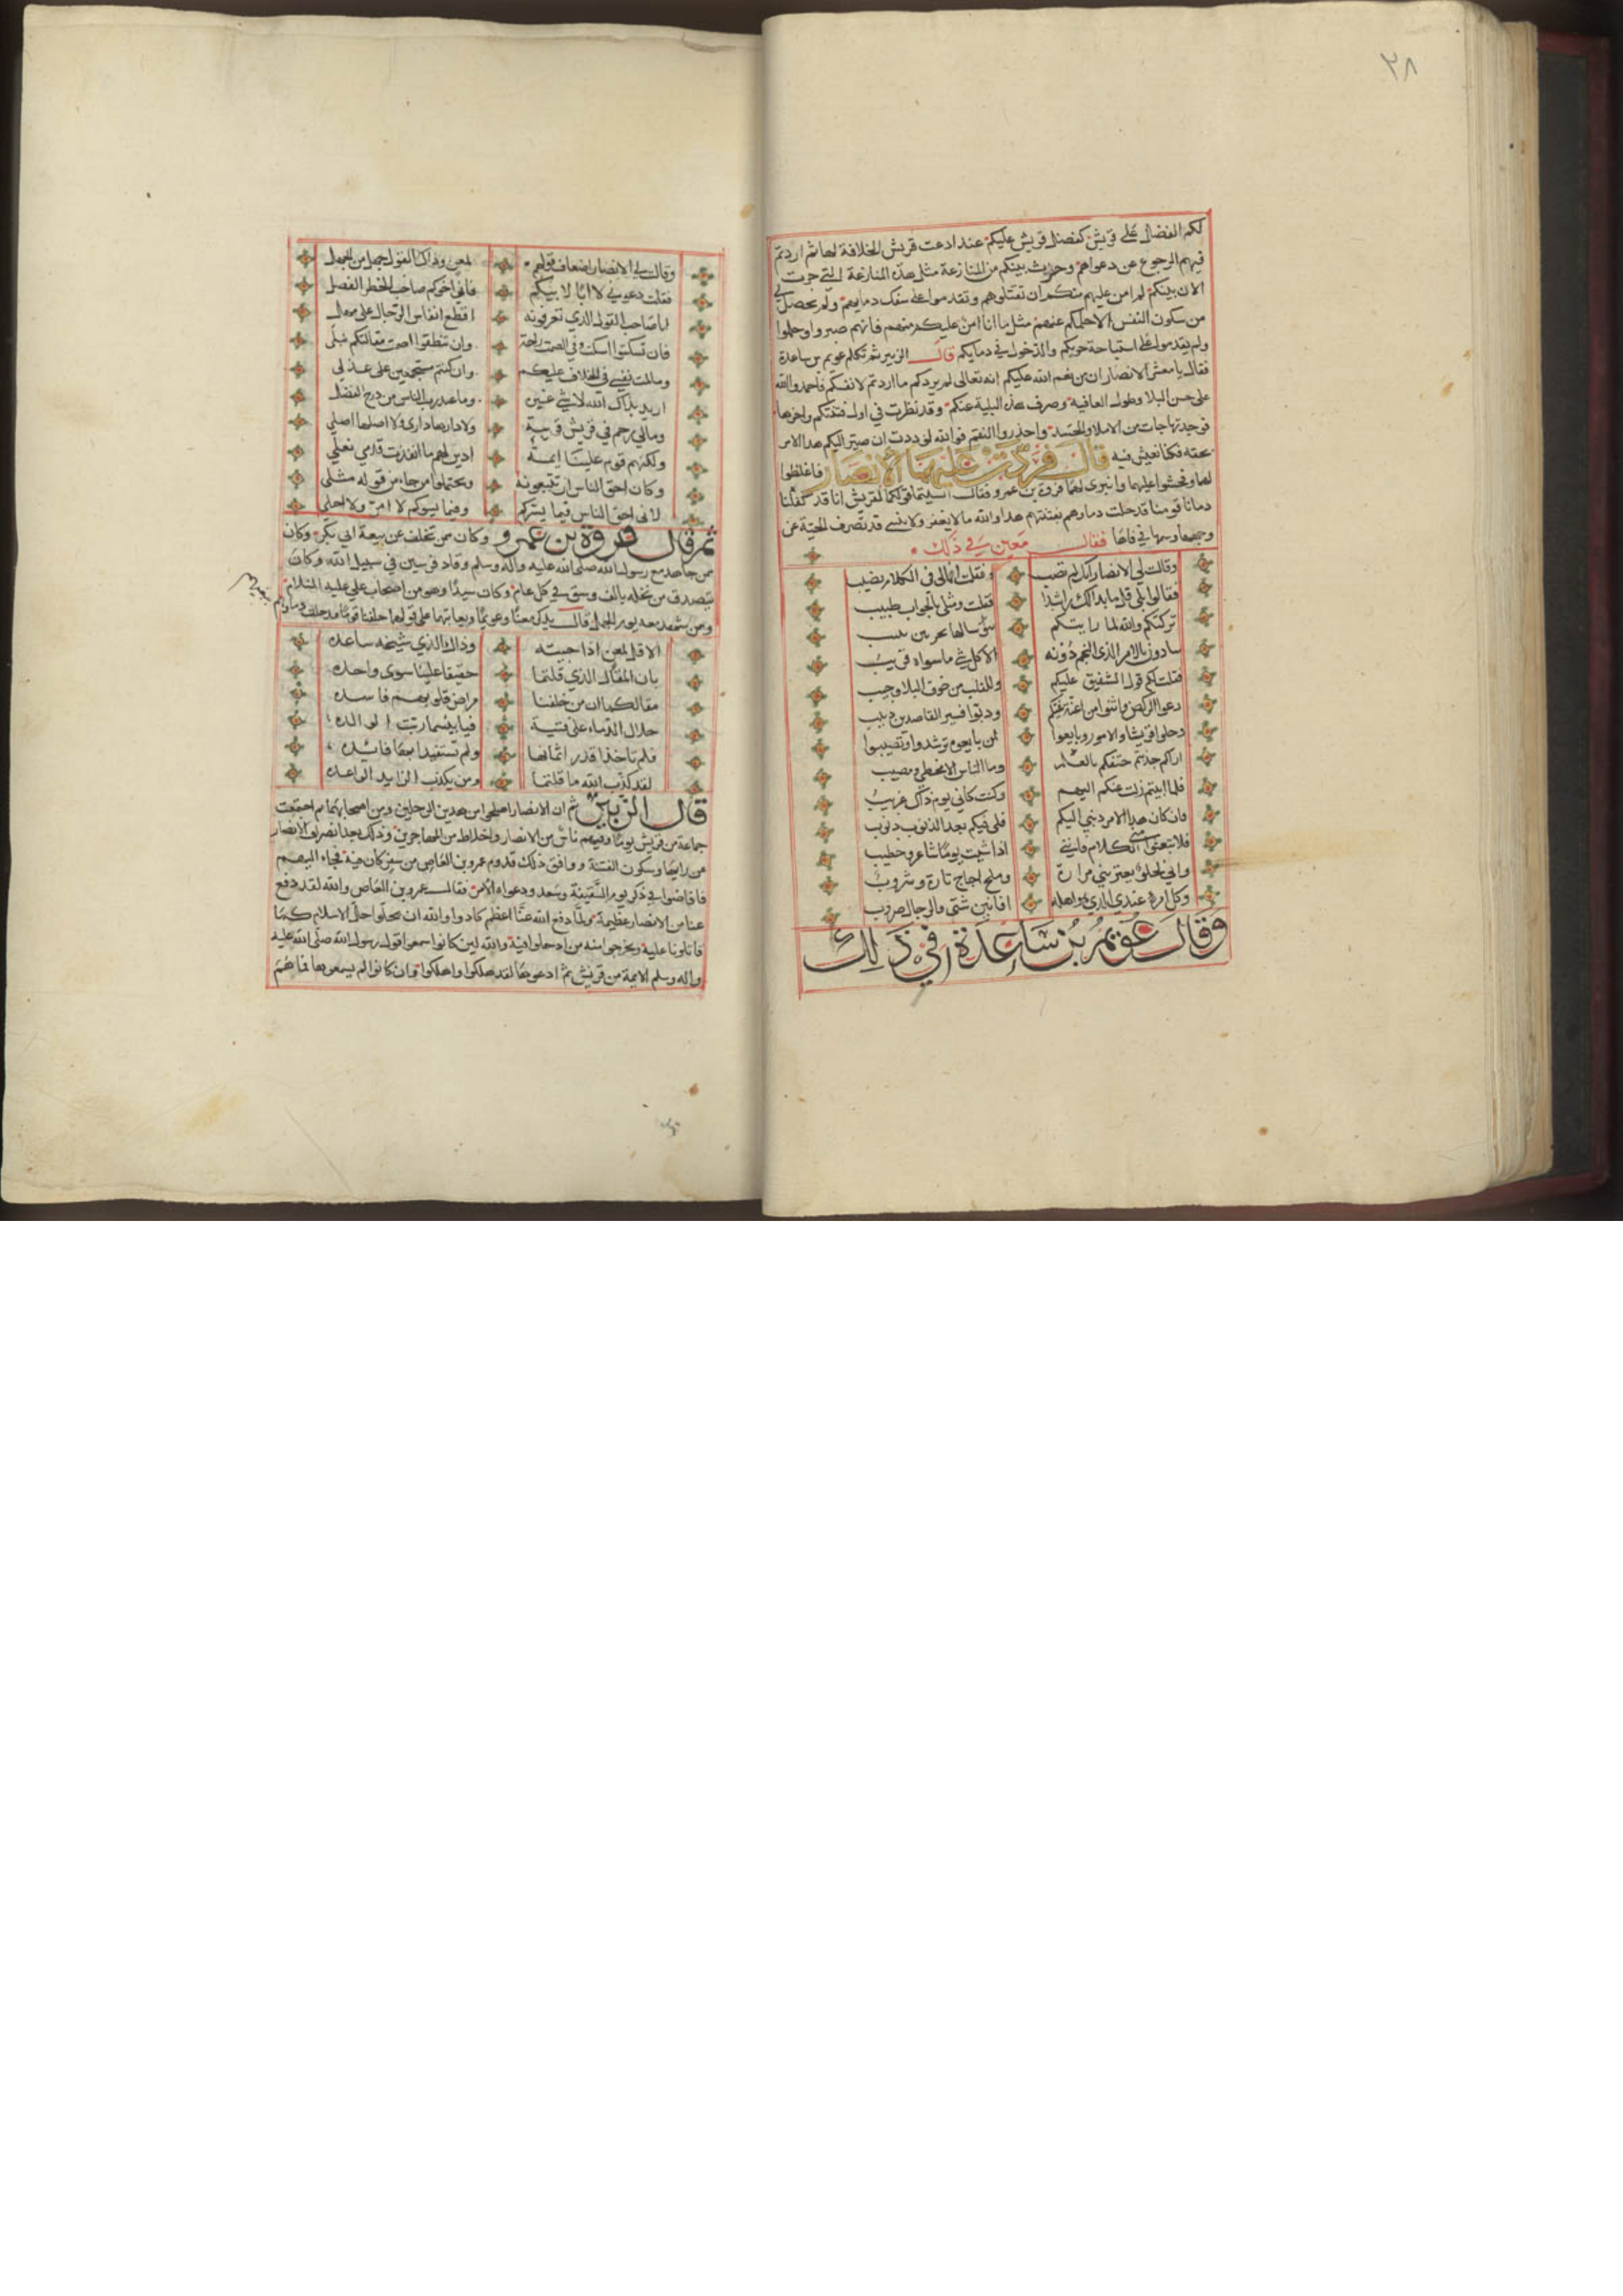 ٢٨
لكم الفضل على قريش كفضل قريش عليكم عند ادعت قريش الخلافة لها ثم اردتم
فيهم الرجوع عن دعواهم وحدث بينكم من المنازعة مثل هذه المنازعة التي جرت
الان بينكم لم امن عليهم منكم ان تقتلوهم وتقدموا على سفك دمايهم ولم يحصل لي
من سكون النفس الاحلمكم عنهم مثل ما انا امن عليكم منهم فانهم صبروا وحملوا
ولم يقدموا على استباحة حريمكم والدخول في دمايكم قال الزبير ثم تكلم عويم بن ساعدة
فقال يا معشر الانصار ان من نعم الله عليكم انه تعالى لم يرد بكم ما اردتم لانفسكم فاحمدوا الله
على حسن البلا وطول العافية وصرف هذه البلية عنكم وقد نظرت في اول فتنتكم واخرها
فوجدتها جات من الاماني والحسد واحذروا النقم فوالله لوددت ان صير اليكم هذا الامر
بحقه فكنا نعيش فيه قال فردت عليهما الانصار فاغلظوا
لهما وفحشوا عليهما وانبرى لهما فروة بن عمرو فقال انسيتما قولكما لقريش انا قد خلفنا
دمانا قومنا قد حلت دماوهم بفتنتهم هذا والله ما لا يغفر ولا ينسى قد تصرف الحية عن
وجهها وسمها في نابها فقال معين في ذلك
وقالت لي الانصار انك لم تصب وفقلت امالي في الكلام نصيب
فقالوا بلى قل ما بدا لك راشدا فقلت ومثلي بالجواب طبيب
تركتكم والله لما رايتكم
سادون بالامر الذي النجم دونه الا كل شي ما سواه قريب
فقلت لكم قول الشفيق عليكم وللقلب من خوف البلا وجيب
دعوا الركض واثنوا من اعنة بغيكم ودبوا فسير القاصدين دبيب
وخلوا قريشا والامور وبايعوا لمن بايعوه ترشدوا وتصيبوا
اراكم جذتم حتفكم بالعـ وما الناس الا مخطي ومصيب
فلما ابيتم زلت عنكم اليهم وكنت كاني يوم ذاك غريب
فان كان هذا الامر ذنبي اليكم فلي فيكم بعد الذنوب ذنوب
فلا تبعثوا مني الكلام فانني اذا شيت يوما شاعر وخطيب
واني لحلو يعتريني مرارة وملح اجاج تارة وشروب
وكل امرء عندي الذي هو اهله افانين شتى والرجال ضروب
وقال عويم بن ساعدة في ذلك
وقالت لي الانصار اضعاف قولهم لمعن وذاك القول جهل من الجهل
فقلت دعوني لا ابا لابيكم فاني اخوكم صاحب الخطر الفصل
انا صاحب القول الذي تعرفونه اقطع انفاس الرجال على مهل
فان تسكتوا اسكت وفي الصمت راحة وان تنطقوا اصمت مقالتكم نبلي
وما لمت نفسي في الخلاف عليكم وان كنتم مستجمعين على عذلي
اريد بذاك الله لا شي غيره وما عند رب الناس من درج الفضل
ومالي رحم في قريش قريبة ولا دارها داري ولا اصلها اصلي
ولكنهم قوم علينا ايمة ادين لهم ما انفذت قدمي نعلي
وكان احق الناس ان تتبعونه ويحتملوا من جاء من قوله مثلي
لاني احق الناس فيما يسركم وفيما يسوكم لا امر ولا احلي
ثم قال فروة بن عمرو وكان ممن تخلف عن بيعة ابي بكر وكان
ممن جاهد مع رسول الله صلى الله عليه واله وسلم وقاد فرسين في سبيل الله وكان
يتصدق من نخله بالف وسق في كل عام وكان سيدا وهو من اصحاب علي عليه السلام
وممن شهد معه يوم الجمل قال يذكر معنا وعويما ويعاتبهما على قولهما خلفنا قوما قد حلت دماوهم
الا قل لمعن اذا جيته وذاك الذي شيخه ساعده
بان المقال الذي قلتما خفيفا علينا سوى واحده
مقالكما ان من خلفنا مراض قلوبهم فاسده
حلال الدماء على فتنة فيا بيسما ربت الوالده
فلم تاخذا قدر اثمانها ولم تستفيدا بها فائده
لقد كذب الله ما قلتما ومن يكذب الزايد الواعده
قال الزبير ثم ان الانصار اصلحوا بين هذين الرجلين وبين اصحابهما ثم اجتمعت
جماعة من قريش يوما وفيهم ناس من الانصار واخلاط من المهاجرين وذلك بعد انصراف الانصار
عن رايها وسكون الفتنة ووافق ذلك قدوم عمرو بن العاص من سفر كان فيه فجاء اليهم
فافاضوا في ذكر يوم السقيفة وسعد ودعواه الامر فقال عمرو بن العاص والله لقد دفع
عنا من الانصار عظيمة ولما دفع الله عنا اعظم كادوا والله ان يحلوا حبل الاسلام كما
قاتلونا عليه ويخرجوا منه من ادخلوا فيه والله لين كانوا سمعوا قول رسول الله صلى الله عليه
واله وسلم الايمة من قريش ثم ادعوها لقد هلكوا واهلكوا وان كانوا لم يسمعوها فما هم